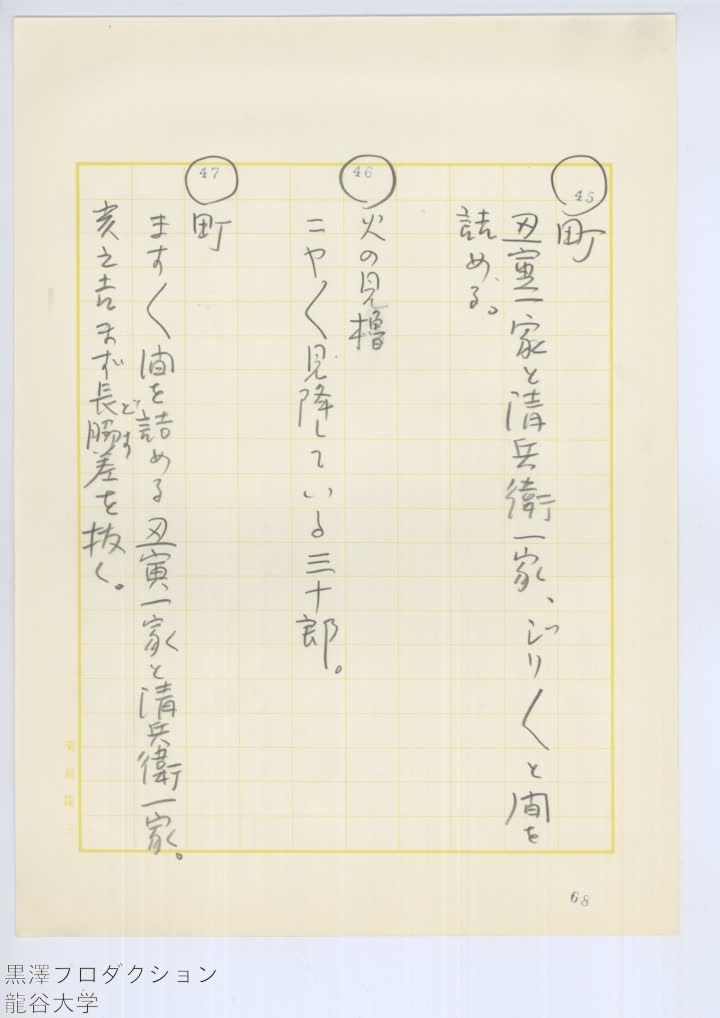 45
町
丑寅一家と清兵衛一家、じり〱と間を
詰める。
46
火の見櫓
ニヤ〱見降している三十郎。
47
町
ます〱間を詰める丑寅一家と清兵衛一家。
亥之吉まず長脇差を抜く。
どす
68
黒澤プロダクション
龍谷大学